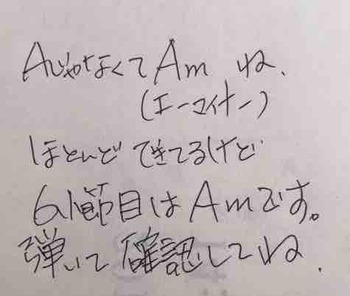 Aじゃなくて Am ね、
(エーマイナー)
ほとんど できてるけど
61節目は Amです。
弾いて 確認してね.